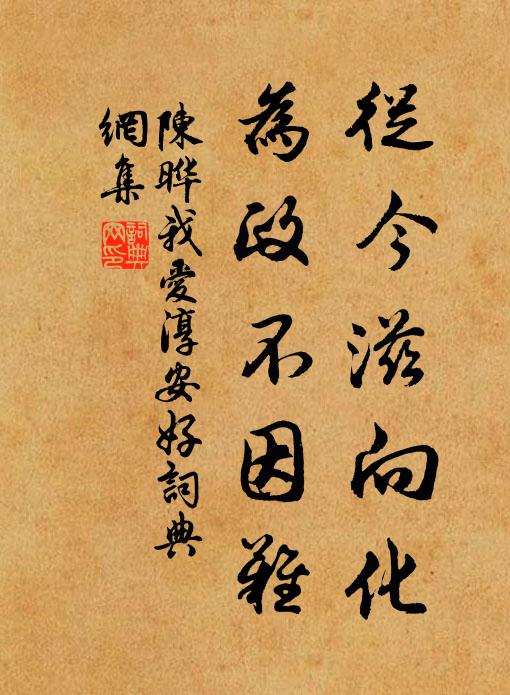 從今滋向化
為政不因難
陳晔我愛淳安好詞典
網集
詞典
网印